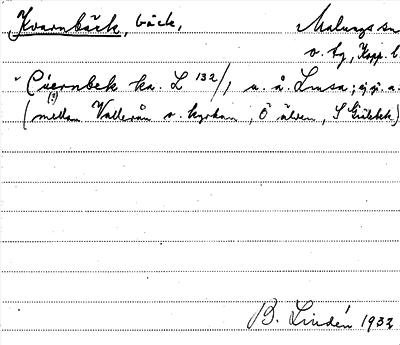 Kvarnbäck, bäck, Malungs sn
v. tg, Kopp. l.
" Cuernbek ka. L 132/1 u. å. Lmsa; ej g. a.
(?)
(mellan Vallerån o. kyrkan, Ö älven, S Gubbk)
B. Lindén 1933